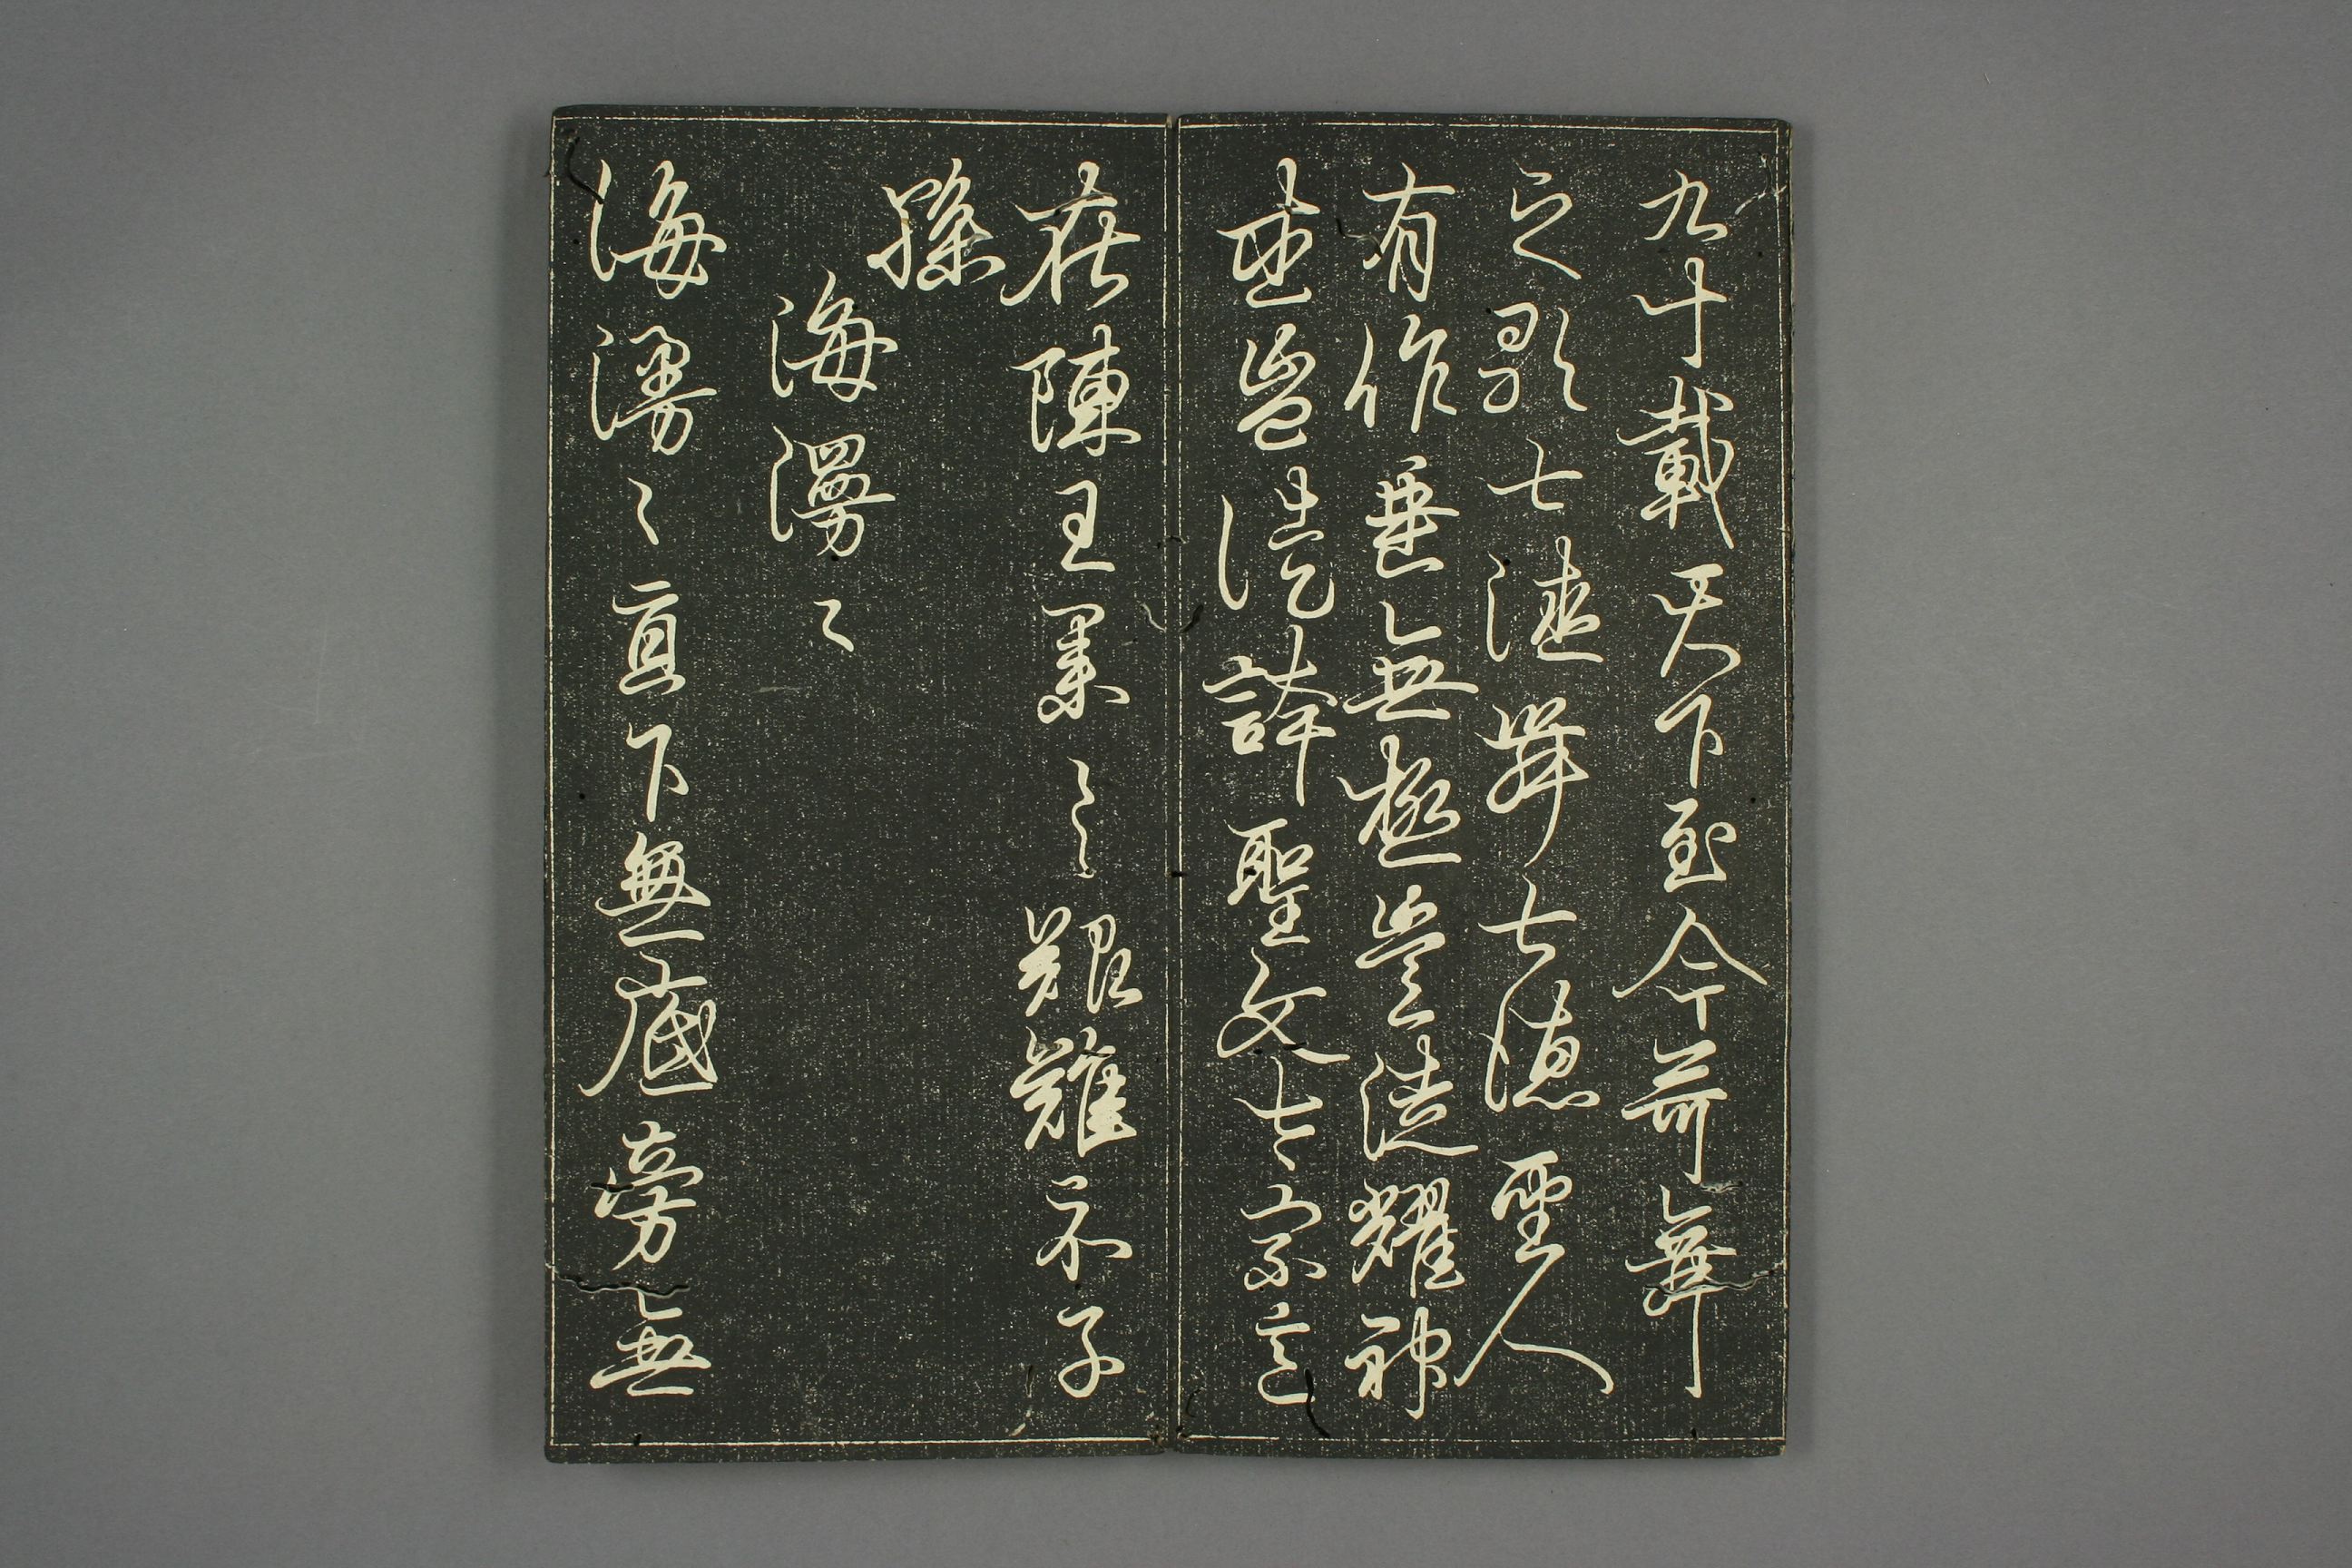 九十載天下至今歌舞
之歌七德舞七德聖人
有作垂無極豈徒耀神
武豈徒誇聖文太宗意
在陳王業々々艱難示子
孫
海漫々
海漫々直下無底旁無